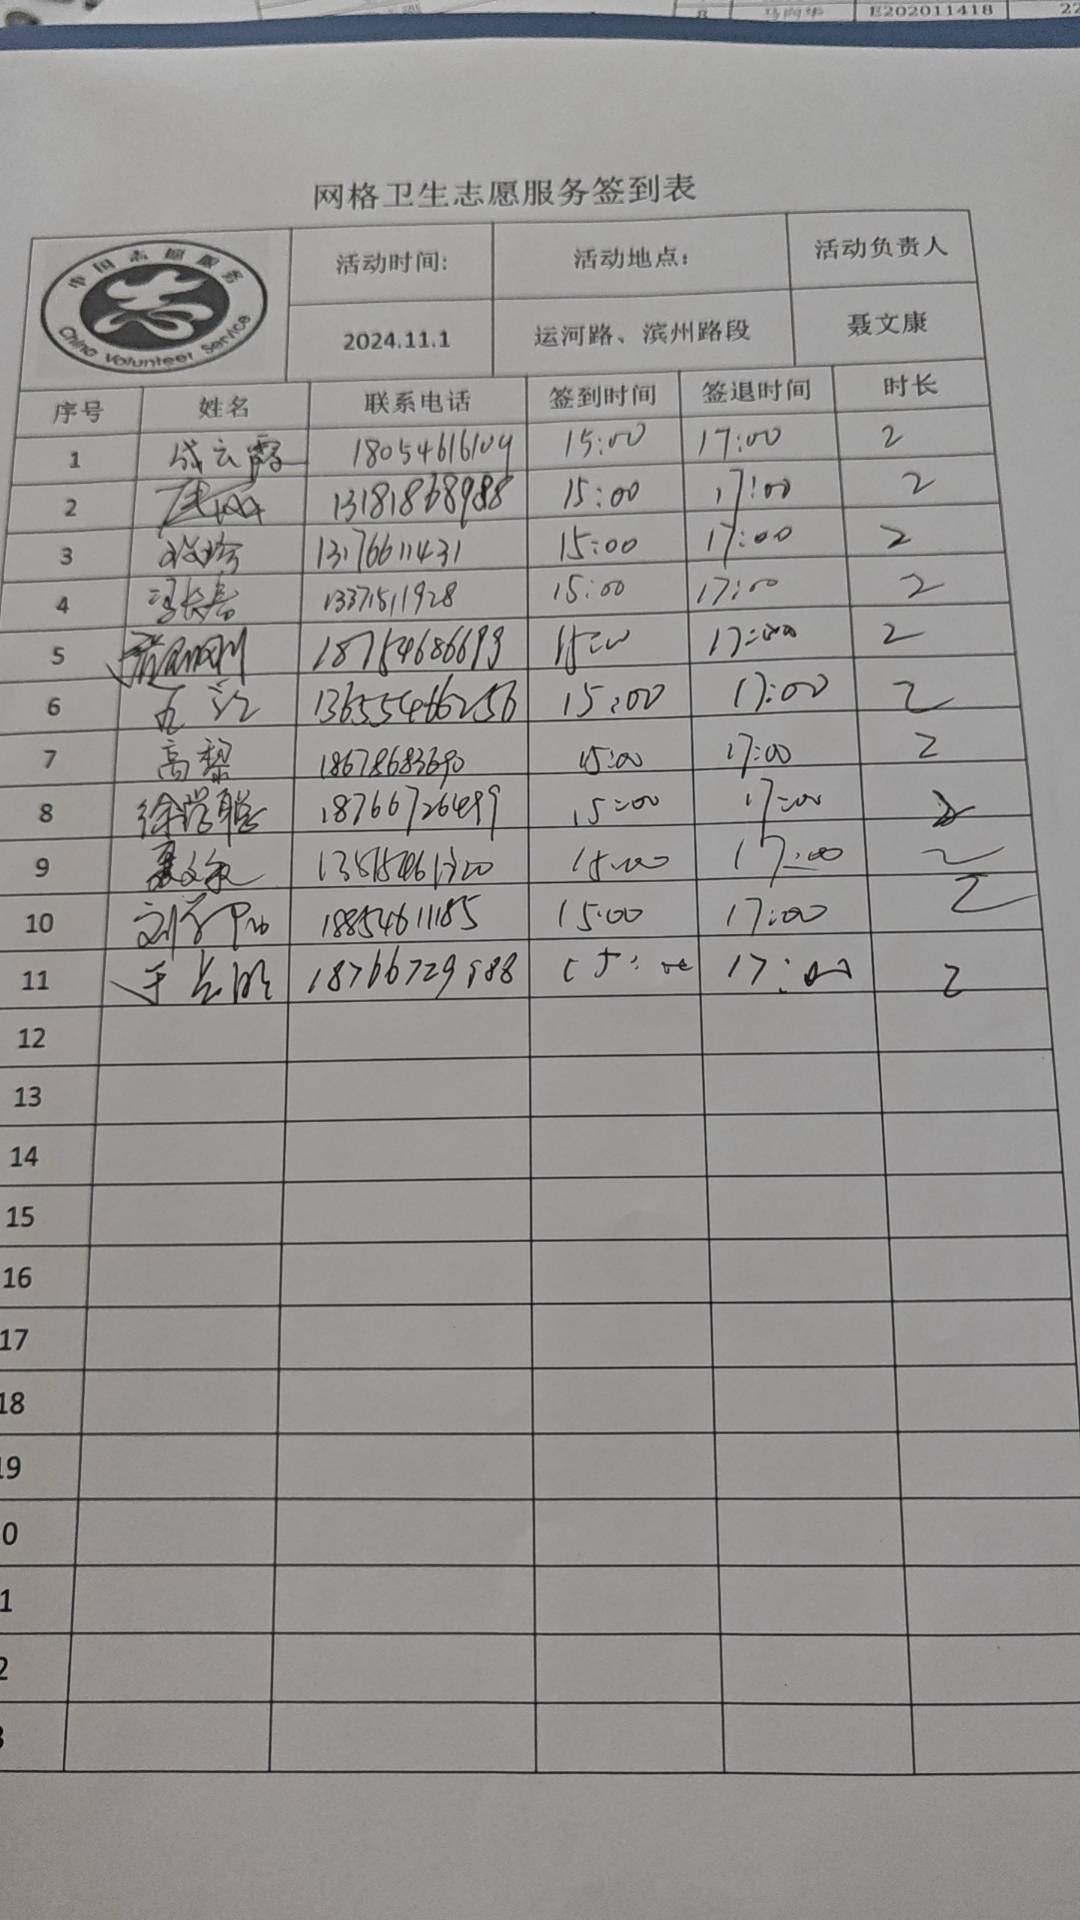 8 马向华 E202011418 22
网格卫生志愿服务签到表
中国志愿服务
China Volunteer Service
活动时间: 活动地点: 活动负责人
2024.11.1 运河路、滨州路段 聂文康
序号 姓名 联系电话 签到时间 签退时间 时长
1 成云霞 18054616109 15:00 17:00 2
2 13181868988 15:00 17:00 2
3 13176611431 15:00 17:00 2
4 冯长春 13371511928 15:00 17:00 2
5 18754686693 15:00 17:00 2
6 13655466256 15:00 17:00 2
7 高黎 18678683690 15:00 17:00 2
8 徐学聪 18766726499 15:00 17:00 2
9 聂文康 15:00 17:00 2
10 18854611185 15:00 17:00 2
11 15:00 17:00 2
12
13
14
15
16
17
18
19
0
1
2
3